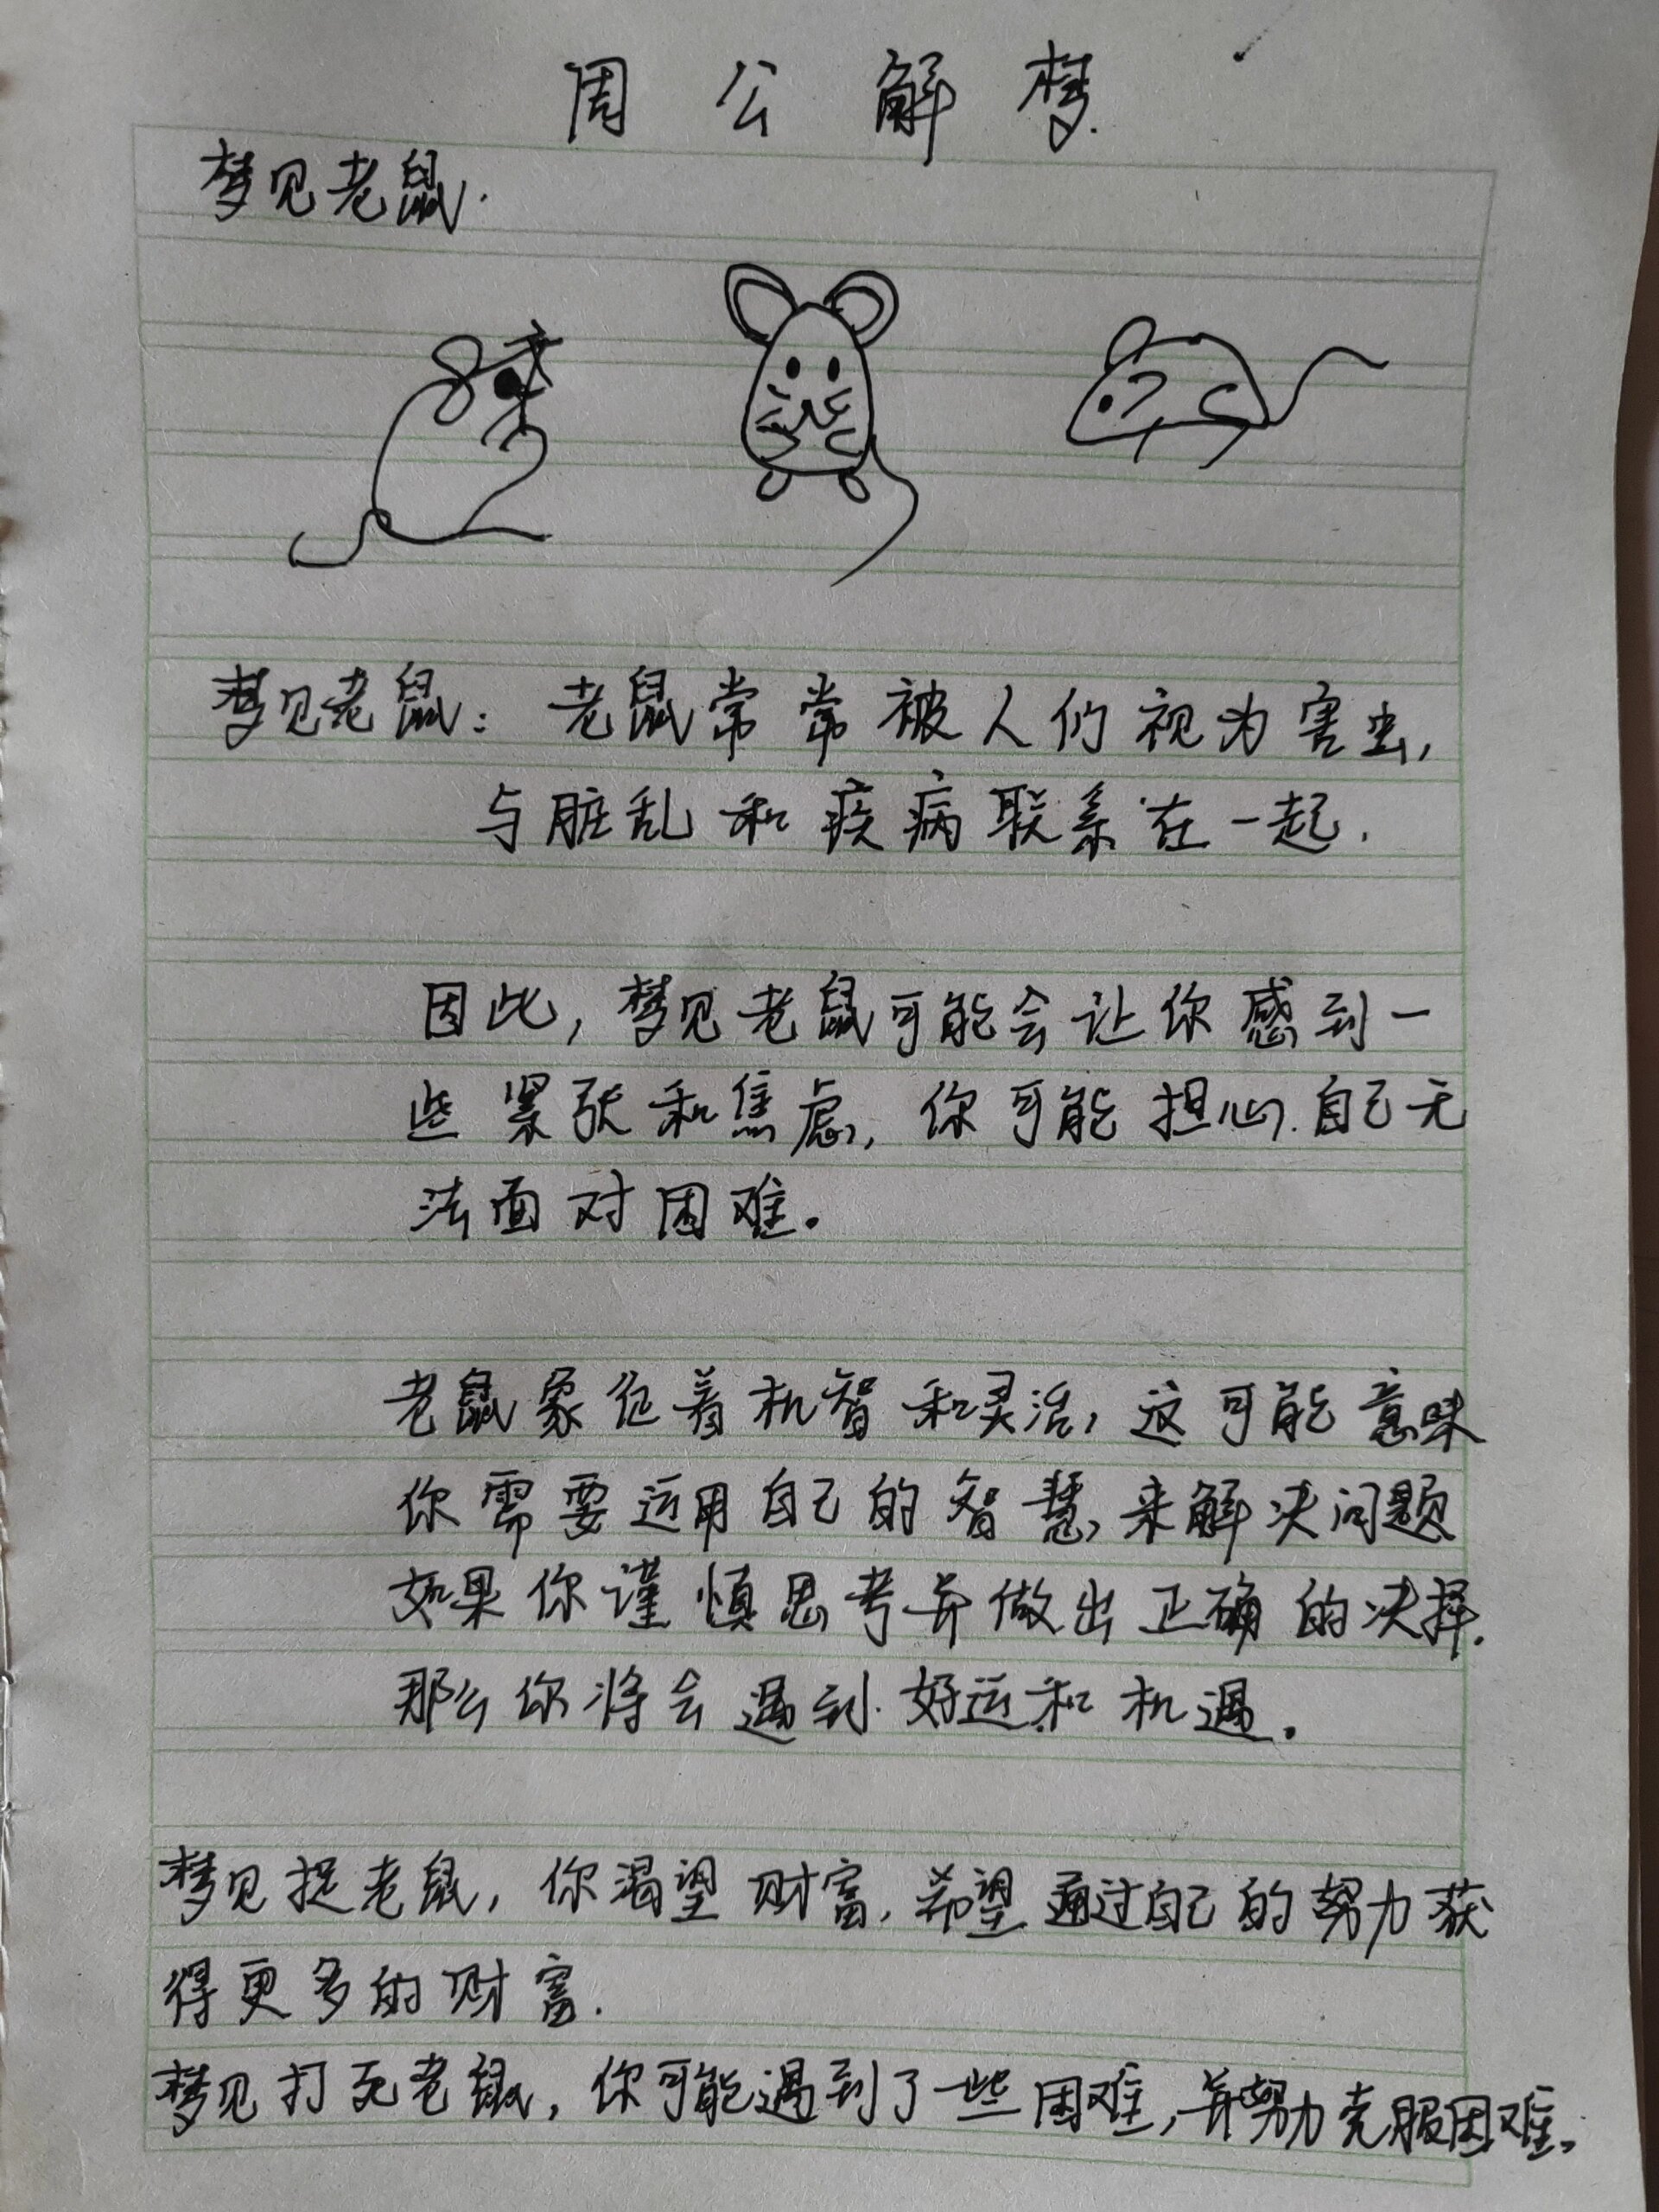 周公解梦
梦见老鼠.
梦见老鼠: 老鼠常常被人们视为害虫,
与脏乱和疾病联系在一起.
因此, 梦见老鼠可能会让你感到一
些紧张和焦虑, 你可能担心自己无
法面对困难。
老鼠象征着机智和灵活, 这可能意味
你需要运用自己的智慧来解决问题
如果你谨慎思考并做出正确的决择.
那么你将会遇到好运和机遇.
梦见捉老鼠, 你渴望财富, 希望通过自己的努力获
得更多的财富.
梦见打死老鼠, 你可能遇到了一些困难, 并努力克服困难。